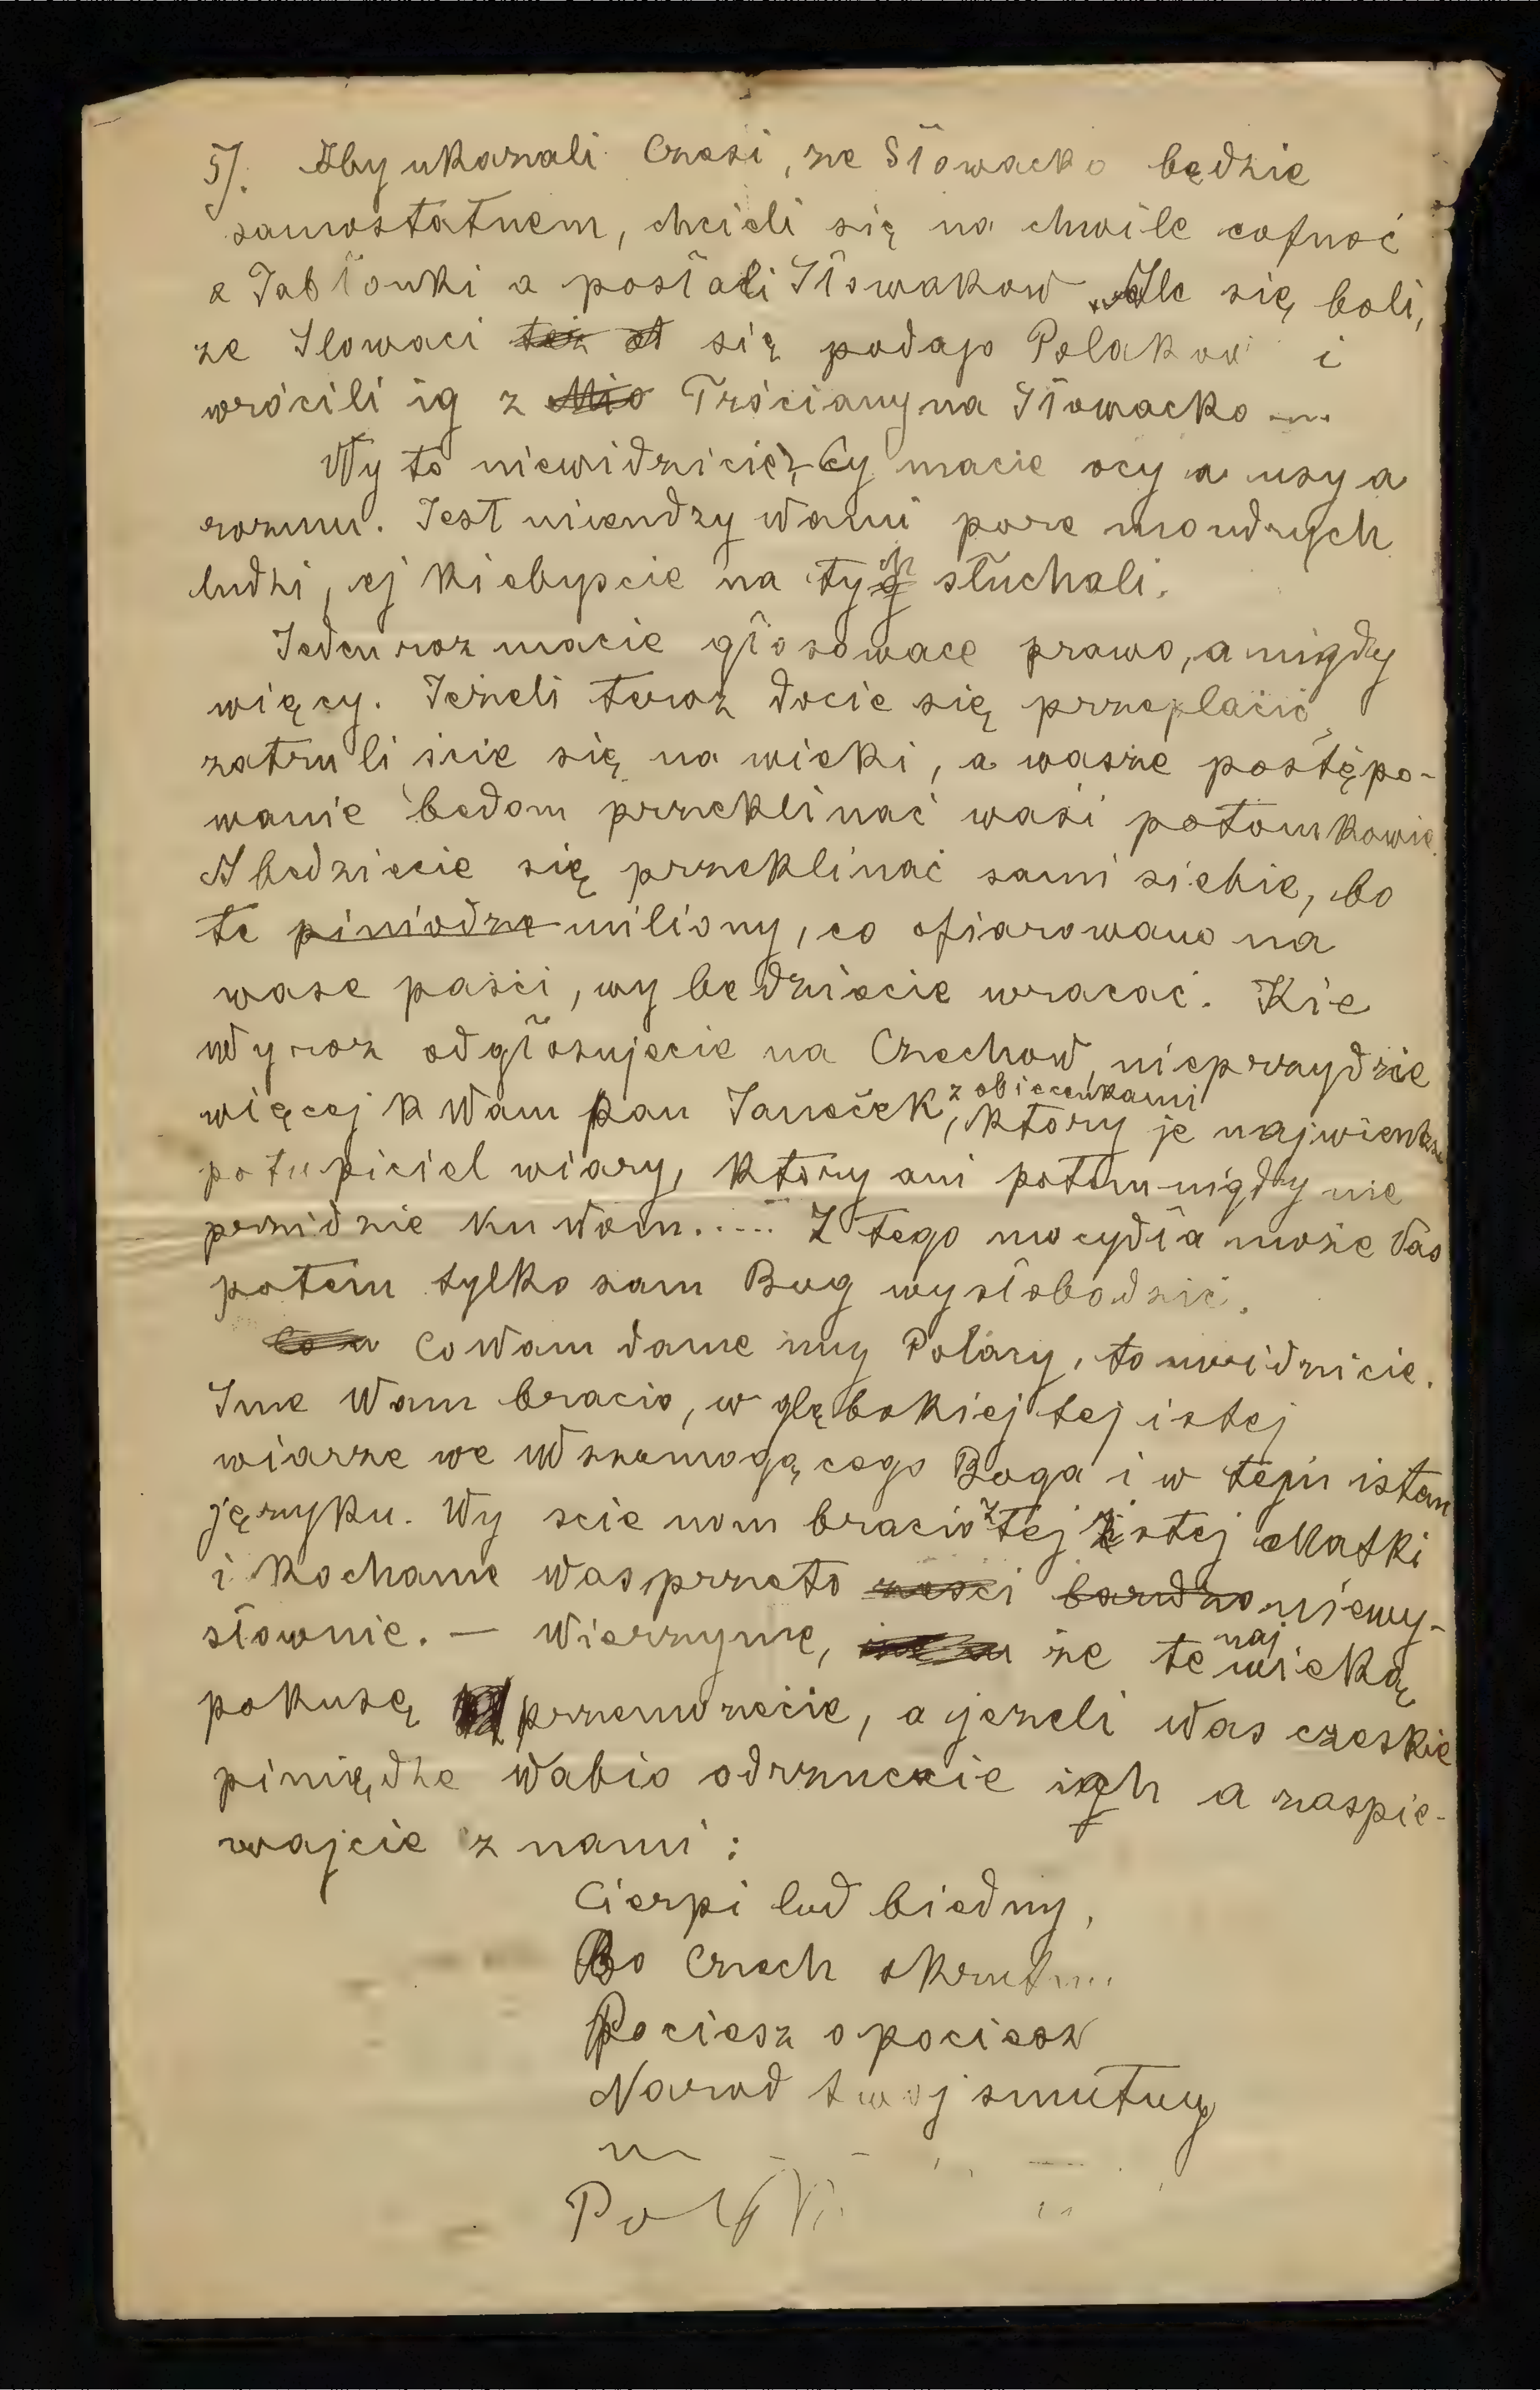 5/. Aby ukazali Czesi, ze Słowacko będzie
samostatnem, chcieli się na chwile cofnoć
z Jabłonki a posłali Słowakow. Ale się boli,
ze Slowaci się podajo Polakow i
wrócili ig z Trściany na Słowacko
Wy to niewidzicie, Cy macie ocy a usy a
rozumu. Jest niendzy Wami pore moudrych
ludzi, ej kiebyscie na tych słuchali.
Jeden roz macie głosowace prawo, a nigdy
więcy. Jezeli teroz docie się przeplacić,
zatruli ście się na wieki, a wasze postępo-
wanie bedom przeklinać wasi potomkowie.
A bedziecie się przeklinać sami siebie, bo
te piniodze miliony, co ofiarowano na
wase paści, wy bedziecie wracać. Kie
Wy roz odgłosujecie na Czechow, nieprzydzie
więcej k Wam pan Janoček z obiecenkami, ktory je najwienksy
potupiciel wiary, ktory ani potem nigdy nie
przidzie ku Wom..... Z tego mocydła moze Vas
potem tylko sam Bog wysłobodzić.
Co Wam dame my Polacy, to uwidzicie.
Sme Wam bracio, w głębokiej tej istej
wiarze we Wszemogącego Boga i w tejm istem
języku. Wy scie nom bracio z tej istej Matki
i kochame Was przeto bardzo niewy-
słownie. — Wierzyme, ze te najwieksą
pokusę przemozecie, a jezeli Was czeskie
piniędze wabio odrzuccie ich a zaspie-
wajcie z nami:
Cierpi lud biedny,
Bo Czech okrutny
Pociesz o pociesz
Narod twoj smutny